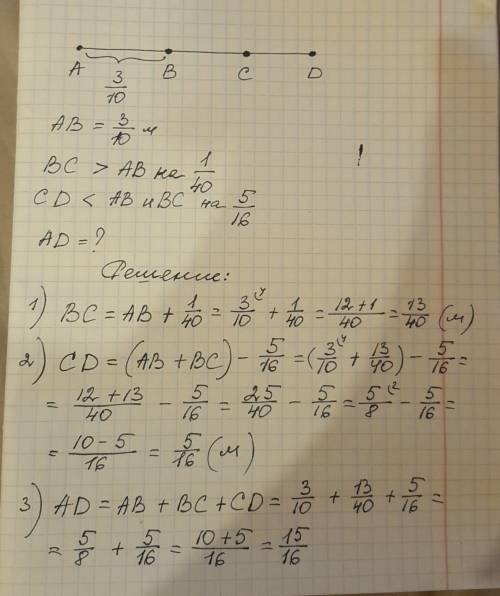 A B C D
3/10
AB = 3/10 м
BC > AB на 1/40
CD < AB и BC на 5/16
!
AD = ?
Решение:
1) BC = AB + 1/40 = 3/10 ⁴ + 1/40 = 12+1/40 = 13/40 (м)
2) CD = (AB + BC) - 5/16 = (3/10 ⁴ + 13/40) - 5/16 =
= 12+13/40 - 5/16 = 25/40 - 5/16 = 5/8 ² - 5/16 =
= 10-5/16 = 5/16 (м)
3) AD = AB + BC + CD = 3/10 + 13/40 + 5/16 =
= 5/8 + 5/16 = 10+5/16 = 15/16